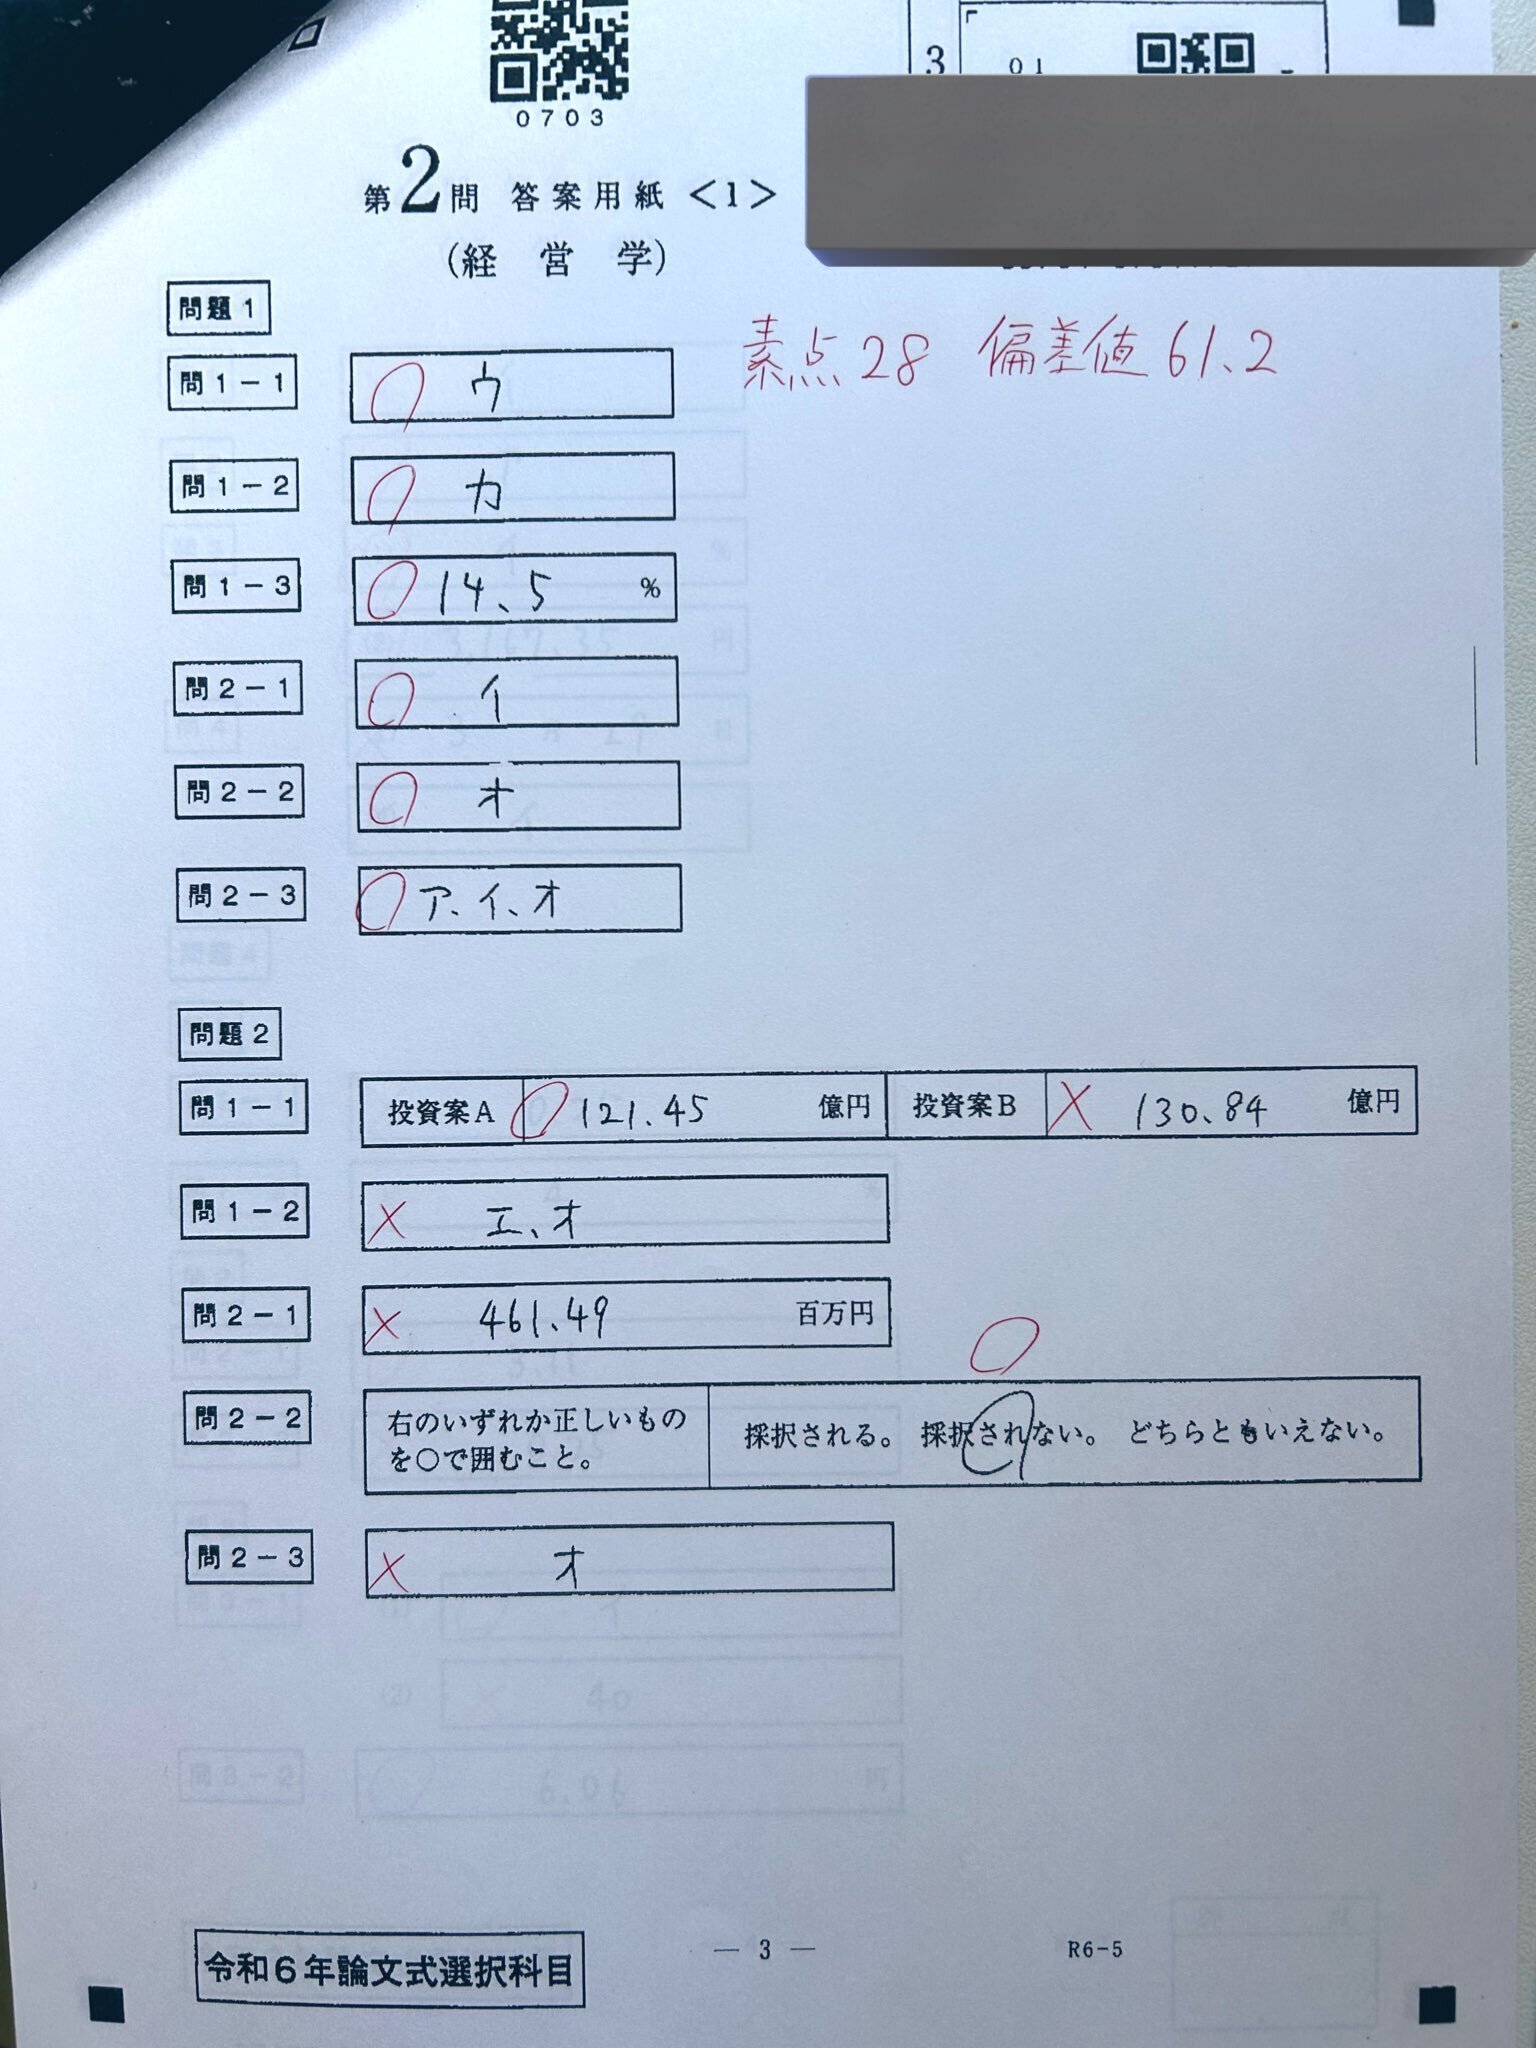 3
01
0703
第2問 答案用紙<1>
(経営学)
素点28 偏差値61.2
問題1
問1-1 ウ
問1-2 カ
問1-3 14.5 %
問2-1 イ
問2-2 オ
問2-3 ア、イ、オ
問題2
問1-1 投資案A 121.45 億円 投資案B 130.84 億円
問1-2 エ、オ
問2-1 461.49 百万円
問2-2 右のいずれか正しいものを○で囲むこと。 採択される。 採択されない。 どちらともいえない。
問2-3 オ
令和6年論文式選択科目
— 3 —
R6-5